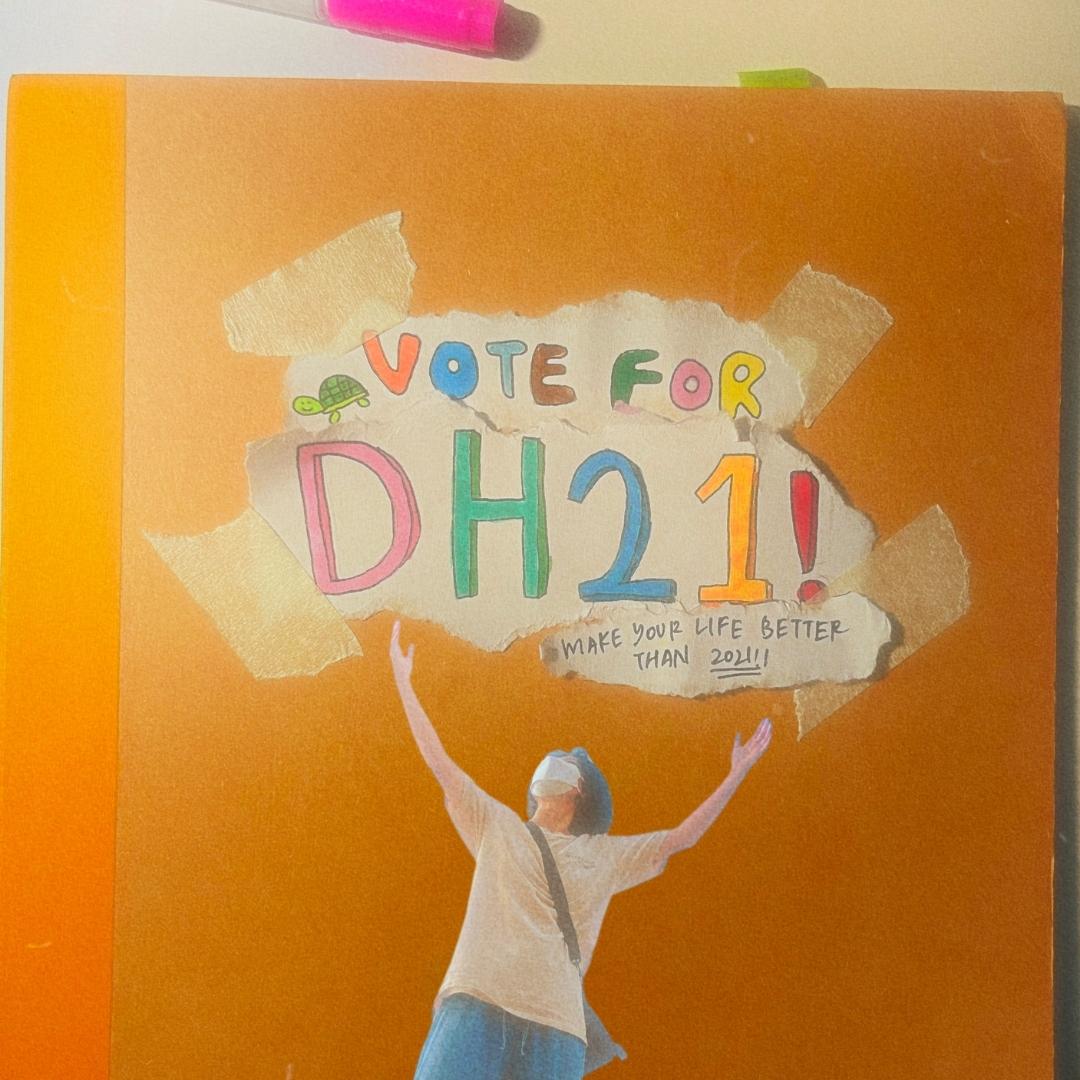 VOTE FOR
DH21!
MAKE YOUR LIFE BETTER
THAN 2021!!